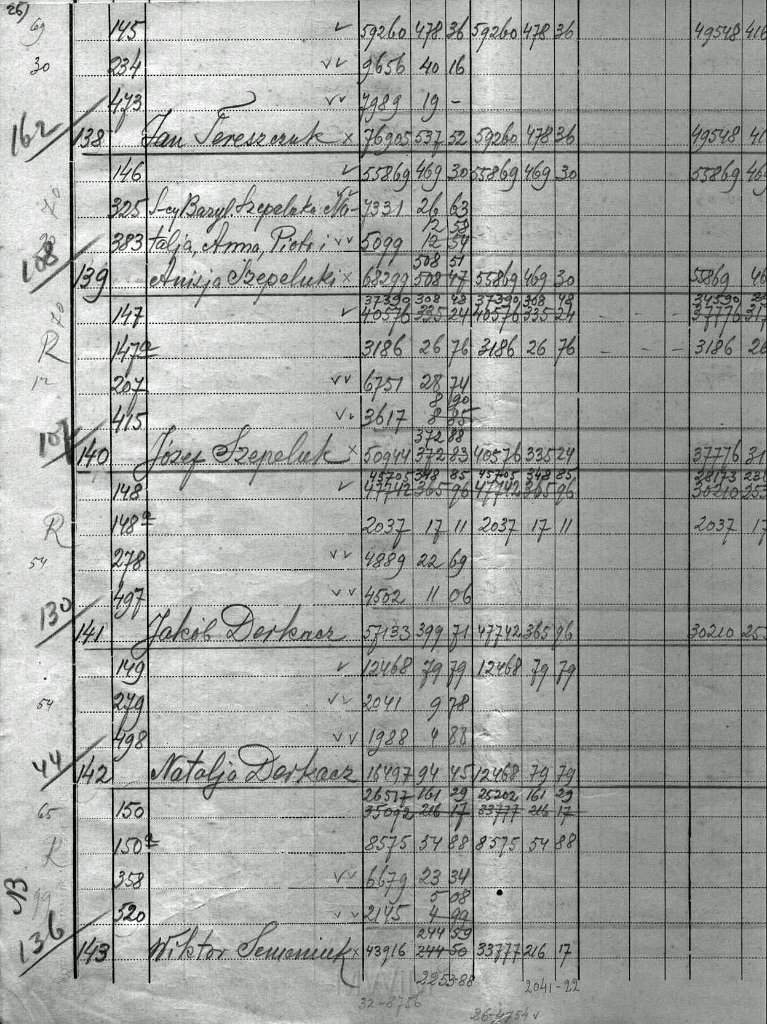 26)
69 145 ✓ 59260 478 36 59260 478 36 49548 416
30 234 ✓✓ 9656 40 16
473 ✓✓ 7989 19 -
162 138 Jan Tereszczuk × 76905 537 52 59260 478 36 49548 41
146 ✓ 55869 469 30 55869 469 30 55869 469
70 325 S-cy Bazyl. Szepeluka Na- 7331 26 63
12 59
383 talja, Anna, Piotr i ✓✓ 5099 12 54
508 51
108 139 Anisja Szepeluki × 68299 508 47 55869 469 30 55869 46
37390 308 48 37390 308 48 34590
70 147 ✓ 40576 335 24 40576 335 24 37776 31
R 147a 3186 26 76 3186 26 76 - - - 3186 26
12 207 ✓✓ 6751 28 74
8 90
415 ✓✓ 3617 8 85
372 88
107 140 Józef Szepeluk × 50944 372 83 40576 335 24 37776 31
45705 348 85 45705 348 85 28173 23
148 ✓ 47742 365 96 47742 365 96 30210 253
R 148a 2037 17 11 2037 17 11 2037 17
54 278 ✓✓ 4889 22 69
497 ✓✓ 4502 11 06
130 141 Jakób Derkacz 57133 399 71 47742 365 96 30210 253
149 ✓ 12468 79 79 12468 79 79
54 279 ✓✓ 2041 9 78
498 ✓✓ 1988 4 88
44 142 Natalja Derkacz 16497 94 45 12468 79 79
26517 161 29 25202 161 29
65 150 35092 216 17 33777 216 17
R 150a 8575 54 88 8575 54 88
358 ✓✓ 6679 23 34
5 08
99 520 ✓✓ 2145 4 99
244 59
136 143 Wiktor Semeniuk × 43916 244 50 33777 216 17
2253-88 2041-22
32-8756
26-4754 ✓